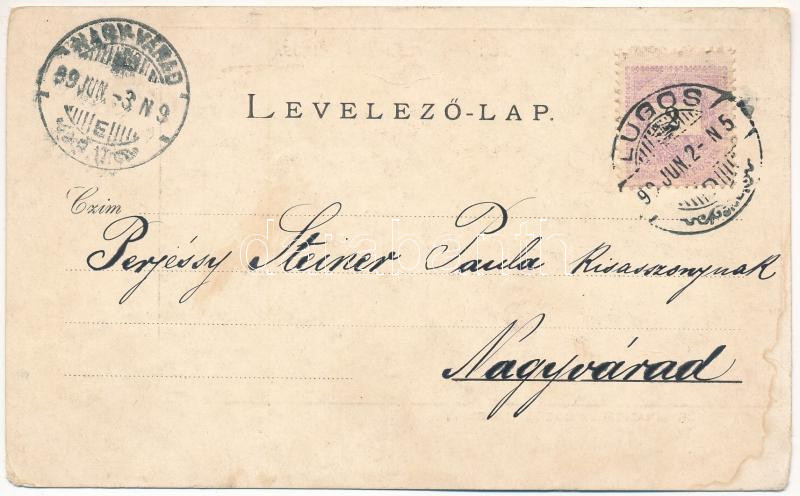 NAGYVÁRAD
99 JUN.-3.N 9
E
LEVELEZŐ-LAP.
LUGOS
99 JUN. 2- N 5
Czim
Perjéssy Steiner Paula kisasszonynak
Nagyvárad
darabanth